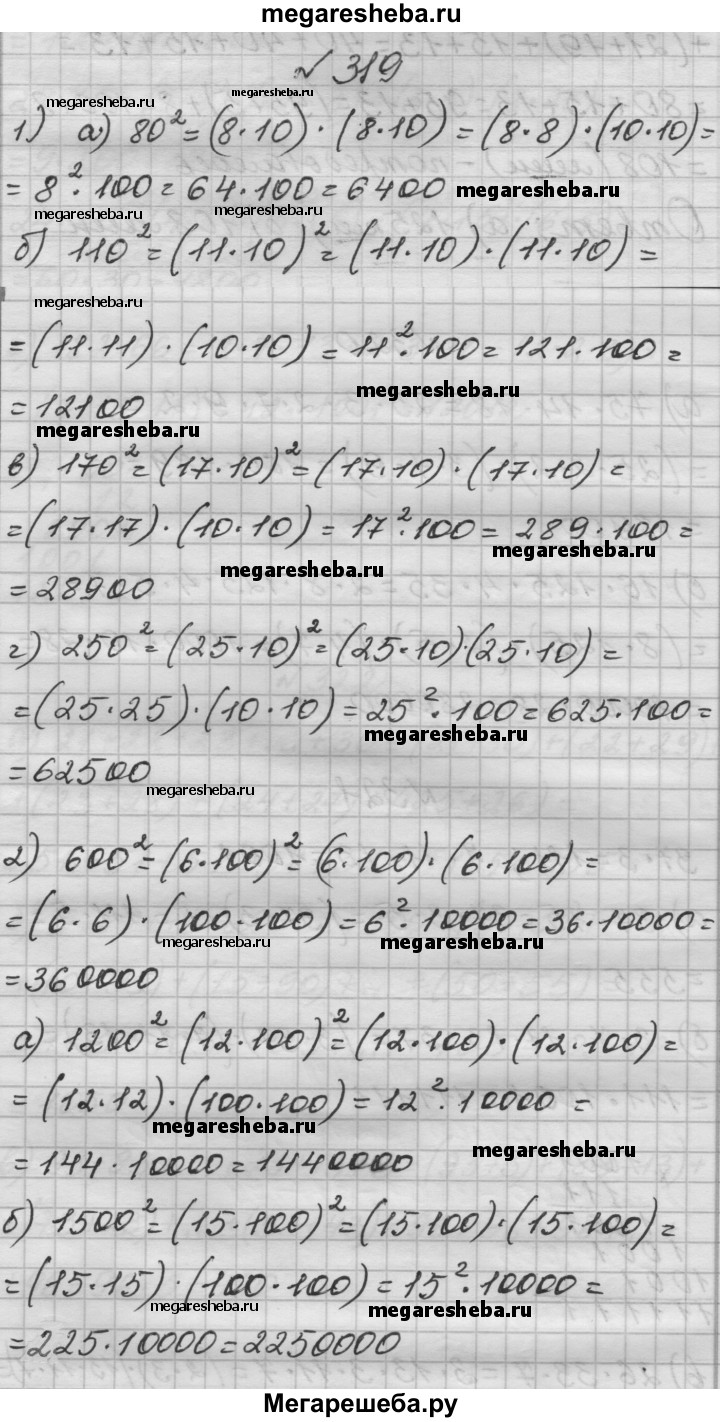 megaresheba.ru
№ 319
megaresheba.ru
megaresheba.ru
1) а) 80² = (8·10) · (8·10) = (8·8) · (10·10) =
= 8² · 100 = 64·100 = 6400 megaresheba.ru
megaresheba.ru megaresheba.ru
б) 110² = (11·10)² = (11·10) · (11·10) =
megaresheba.ru
= (11·11) · (10·10) = 11² · 100 = 121·100 =
megaresheba.ru
= 12100
megaresheba.ru
в) 170² = (17·10)² = (17·10) · (17·10) =
= (17·17) · (10·10) = 17² · 100 = 289·100 =
megaresheba.ru
megaresheba.ru
= 28900
г) 250² = (25·10)² = (25·10)·(25·10) =
= (25·25) · (10·10) = 25² · 100 = 625·100 =
megaresheba.ru
= 62500
megaresheba.ru
2) 600² = (6·100)² = (6·100) · (6·100) =
= (6·6) · (100·100) = 6² · 10000 = 36·10000 =
megaresheba.ru megaresheba.ru
= 360000
а) 1200² = (12·100)² = (12·100) · (12·100) =
= (12·12) · (100·100) = 12² · 10000 =
megaresheba.ru
megaresheba.ru
= 144·10000 = 1440000
б) 1500² = (15·100)² = (15·100)·(15·100) =
= (15·15) · (100·100) = 15² · 10000 =
megaresheba.ru megaresheba.ru
= 225·10000 = 2250000
Мегарешеба.ру